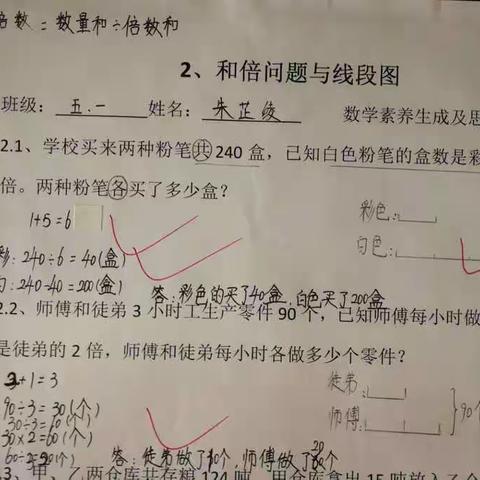 倍数 = 数量和÷倍数和
2、和倍问题与线段图
班级: 五.一 姓名: 朱芷俊 数学素养生成及思
2.1、学校买来两种粉笔共 240 盒,已知白色粉笔的盒数是彩
倍。两种粉笔各买了多少盒?
1+5=6
彩色:
彩: 240÷6=40(盒)
白色:
240-40=200(盒)
答:彩色的买了40盒,白色买了200盒
2.2、师傅和徒弟 3 小时工生产零件 90 个,已知师傅每小时做
是徒弟的 2 倍,师傅和徒弟每小时各做多少个零件?
2+1=3
徒弟:
90÷3=30(个)
师傅:
90个
30÷3=60(个)
30×2=60(个)
60÷2=20(个)
答:徒弟做了10个,师傅做了20个
3、甲、乙两仓库共存粮 124 吨,甲仓库拿出 15 吨放入乙仓